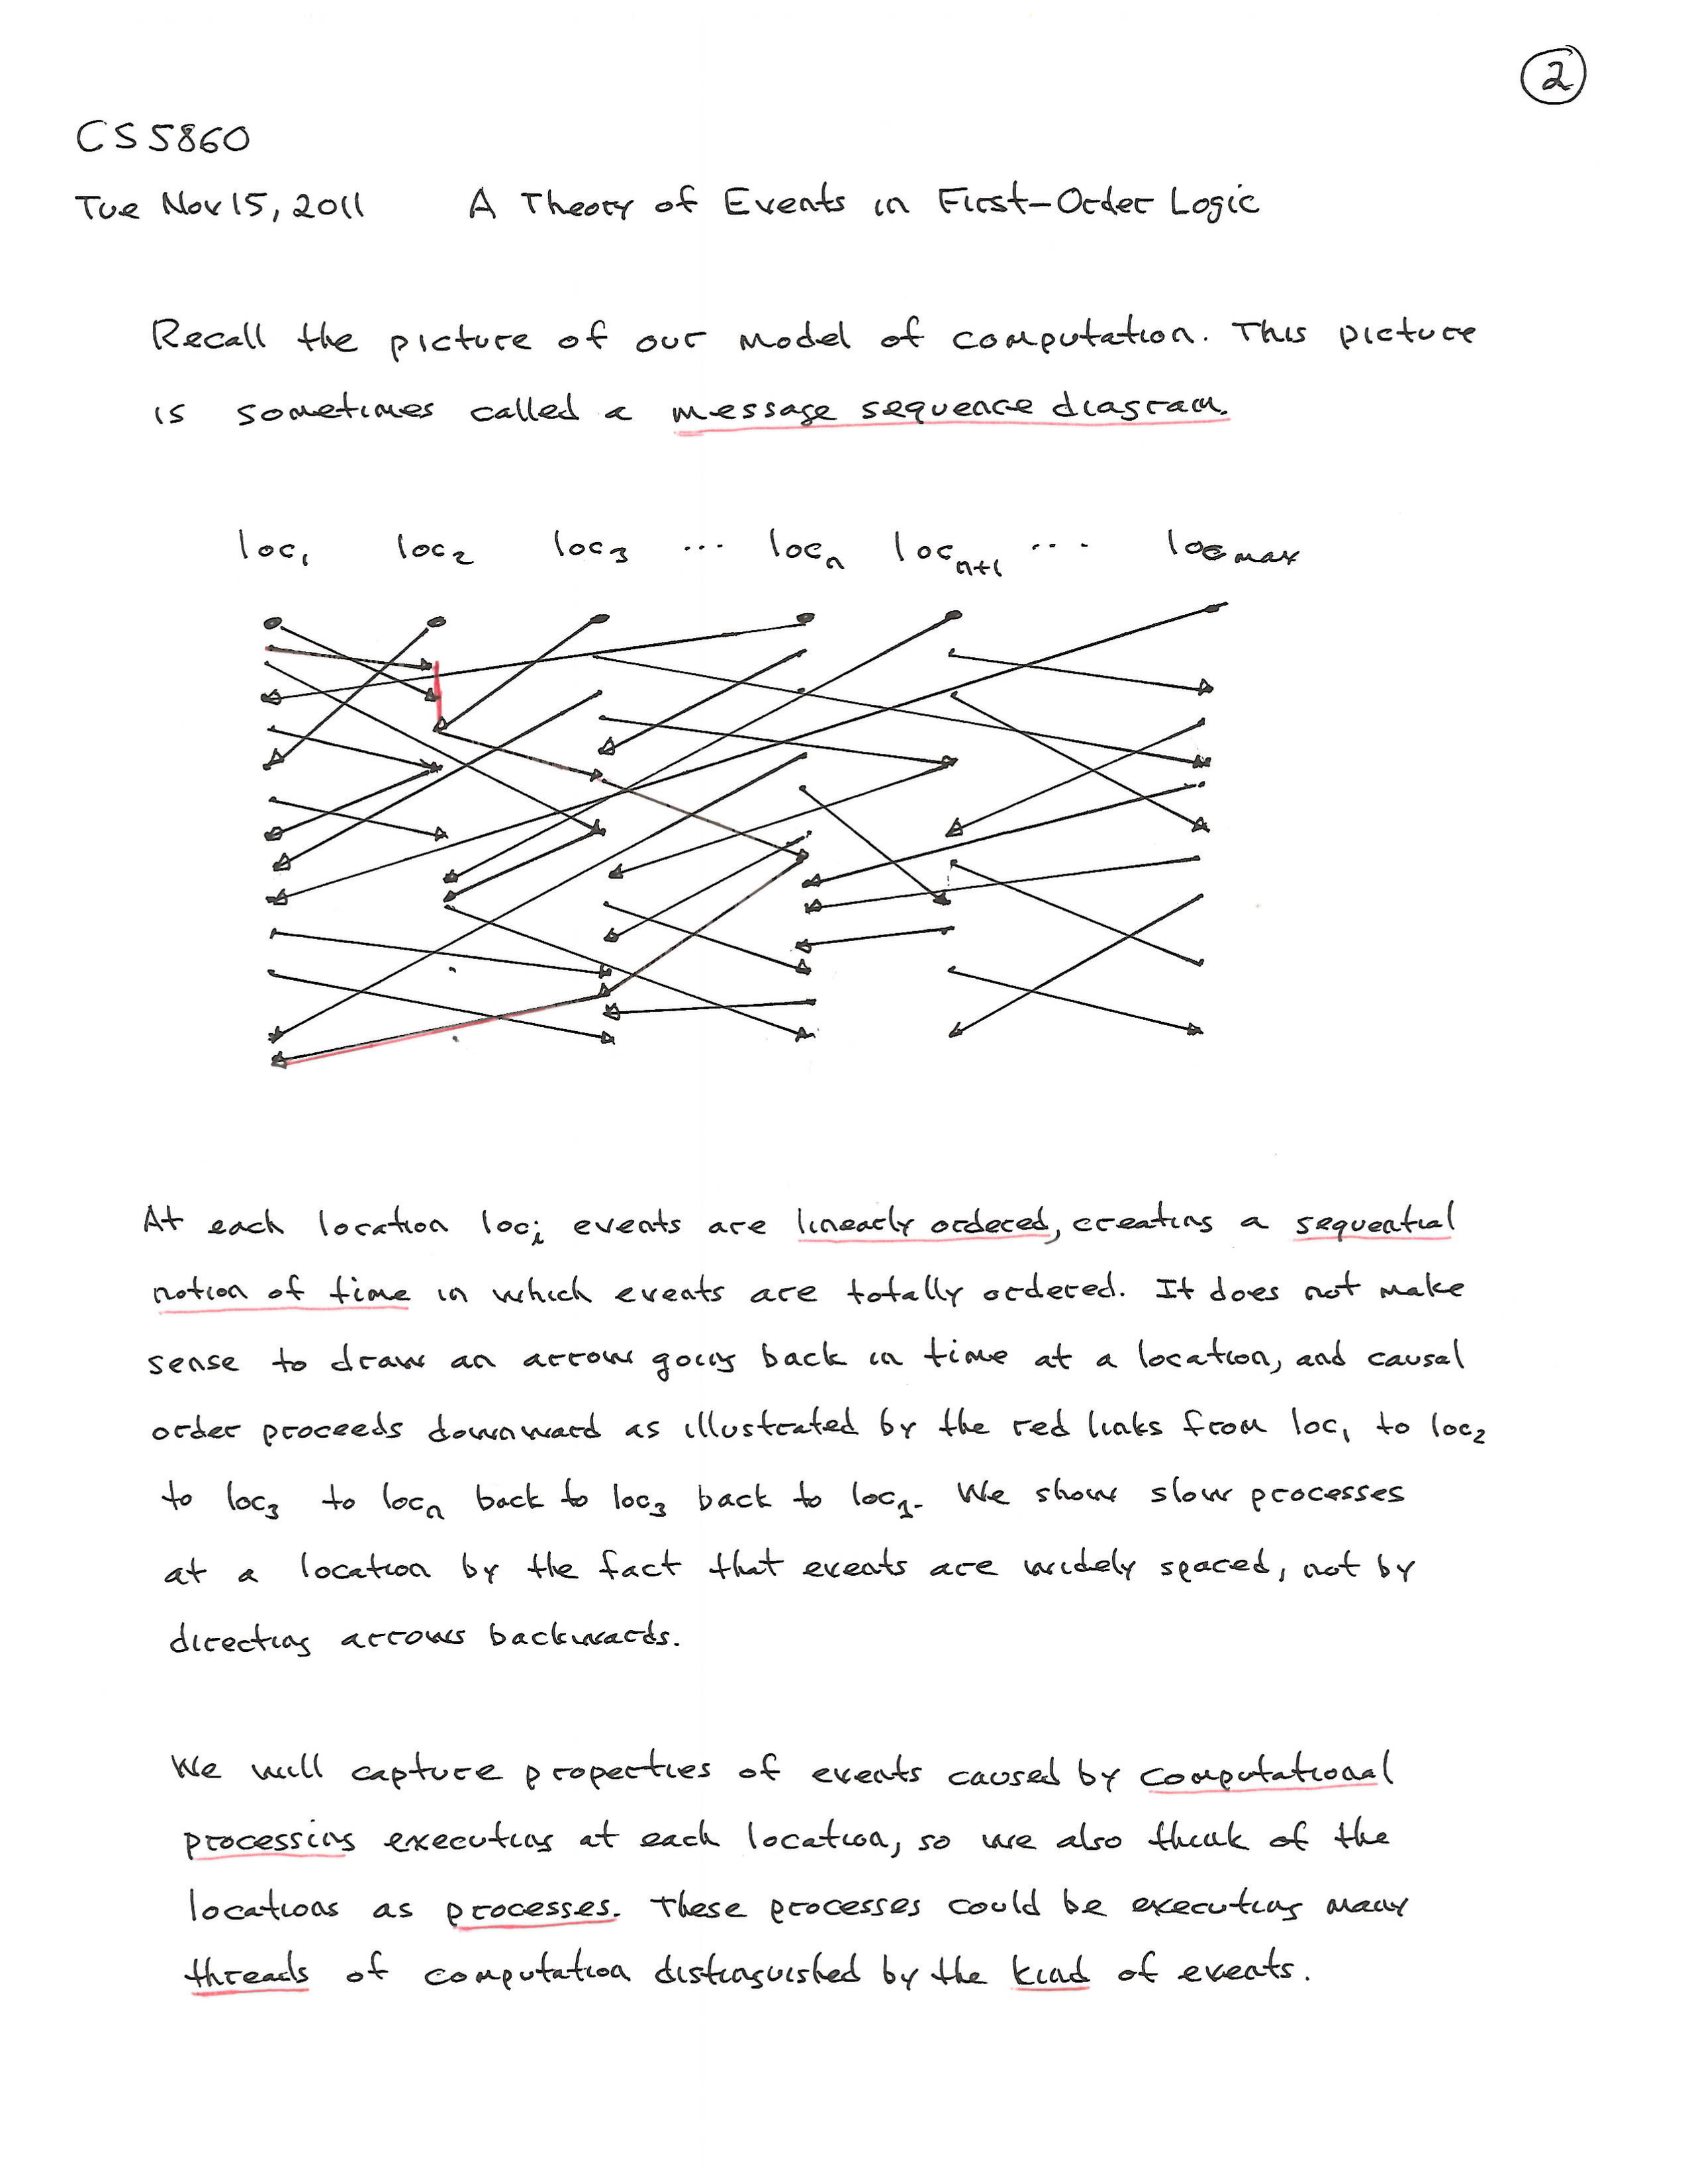 2
CS5860
Tue Nov 15, 2011 A Theory of Events in First-Order Logic
Recall the picture of our model of computation. This picture
is sometimes called a message sequence diagram.
loc₁ loc₂ loc₃ ... locₙ locₙ₊₁ ... loc max
At each location locᵢ events are linearly ordered, creating a sequential
notion of time in which events are totally ordered. It does not make
sense to draw an arrow going back in time at a location, and causal
order proceeds downward as illustrated by the red links from loc₁ to loc₂
to loc₃ to locₙ back to loc₃ back to loc₁. We show slow processes
at a location by the fact that events are widely spaced, not by
directing arrows backwards.
We will capture properties of events caused by computational
processing executing at each location, so we also think of the
locations as processes. These processes could be executing many
threads of computation distinguished by the kind of events.